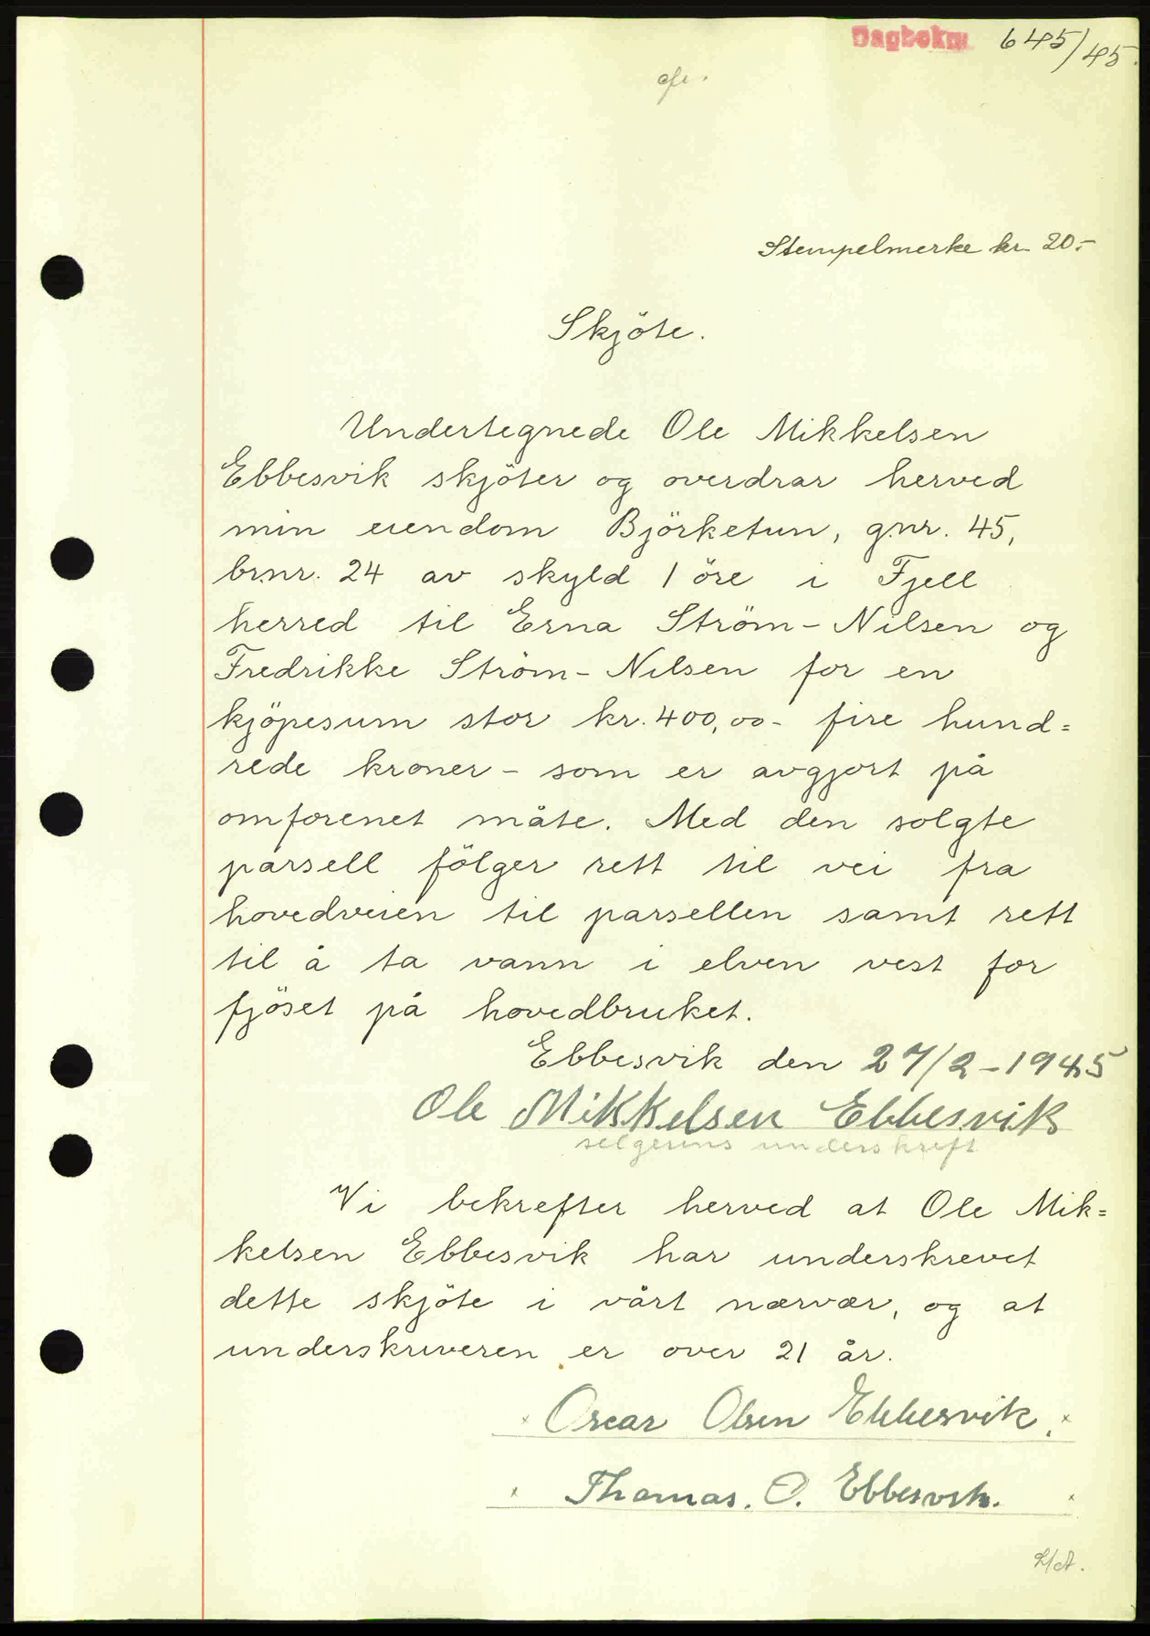 Dagboknr 645/45.
Stempelmerke kr 20.-
Skjöte.
Undertegnede Ole Mikkelsen
Ebbesvik skjöter og overdrar herved
min eiendom Björketun, gnr. 45,
brnr. 24 av skyld 1 öre i Fjell
herred til Erna Ström-Nilsen og
Fredrikke Ström-Nilsen for en
kjöpesum stor kr. 400,00- fire hund=
rede kroner - som er avgjort på
omforenet måte. Med den solgte
parsell fölger rett til vei fra
hovedveien til parsellen samt rett
til å ta vann i elven vest for
fjöset på hovedbruket.
Ebbesvik den 27/2-1945
Ole Mikkelsen Ebbesvik
selgerens underskrift
Vi bekrefter herved at Ole Mik=
kelsen Ebbesvik har underskrevet
dette skjöte i vårt nærvær, og at
underskriveren er over 21 år.
Oscar Olsen Ebbesvik.
Thomas. O. Ebbesvik.